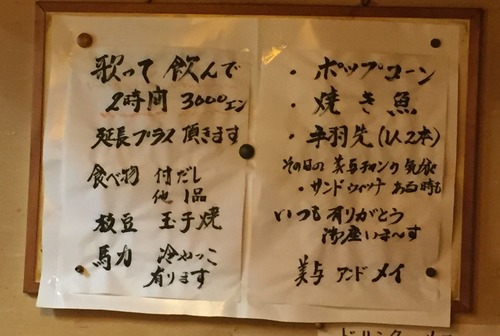 歌って 飲んで
2時間 3000エン
延長プラス 頂きます
食べ物 付だし
他 1品
枝豆 玉子焼
馬力 冷やっこ
有ります
・ポップコーン
・焼き魚
・手羽先(1人2本)
その日の 美与チャンク 気分で
・サンドウィッチ ある時も
いつも 有りがとう
御座いま〜す
美与 アンド メイ